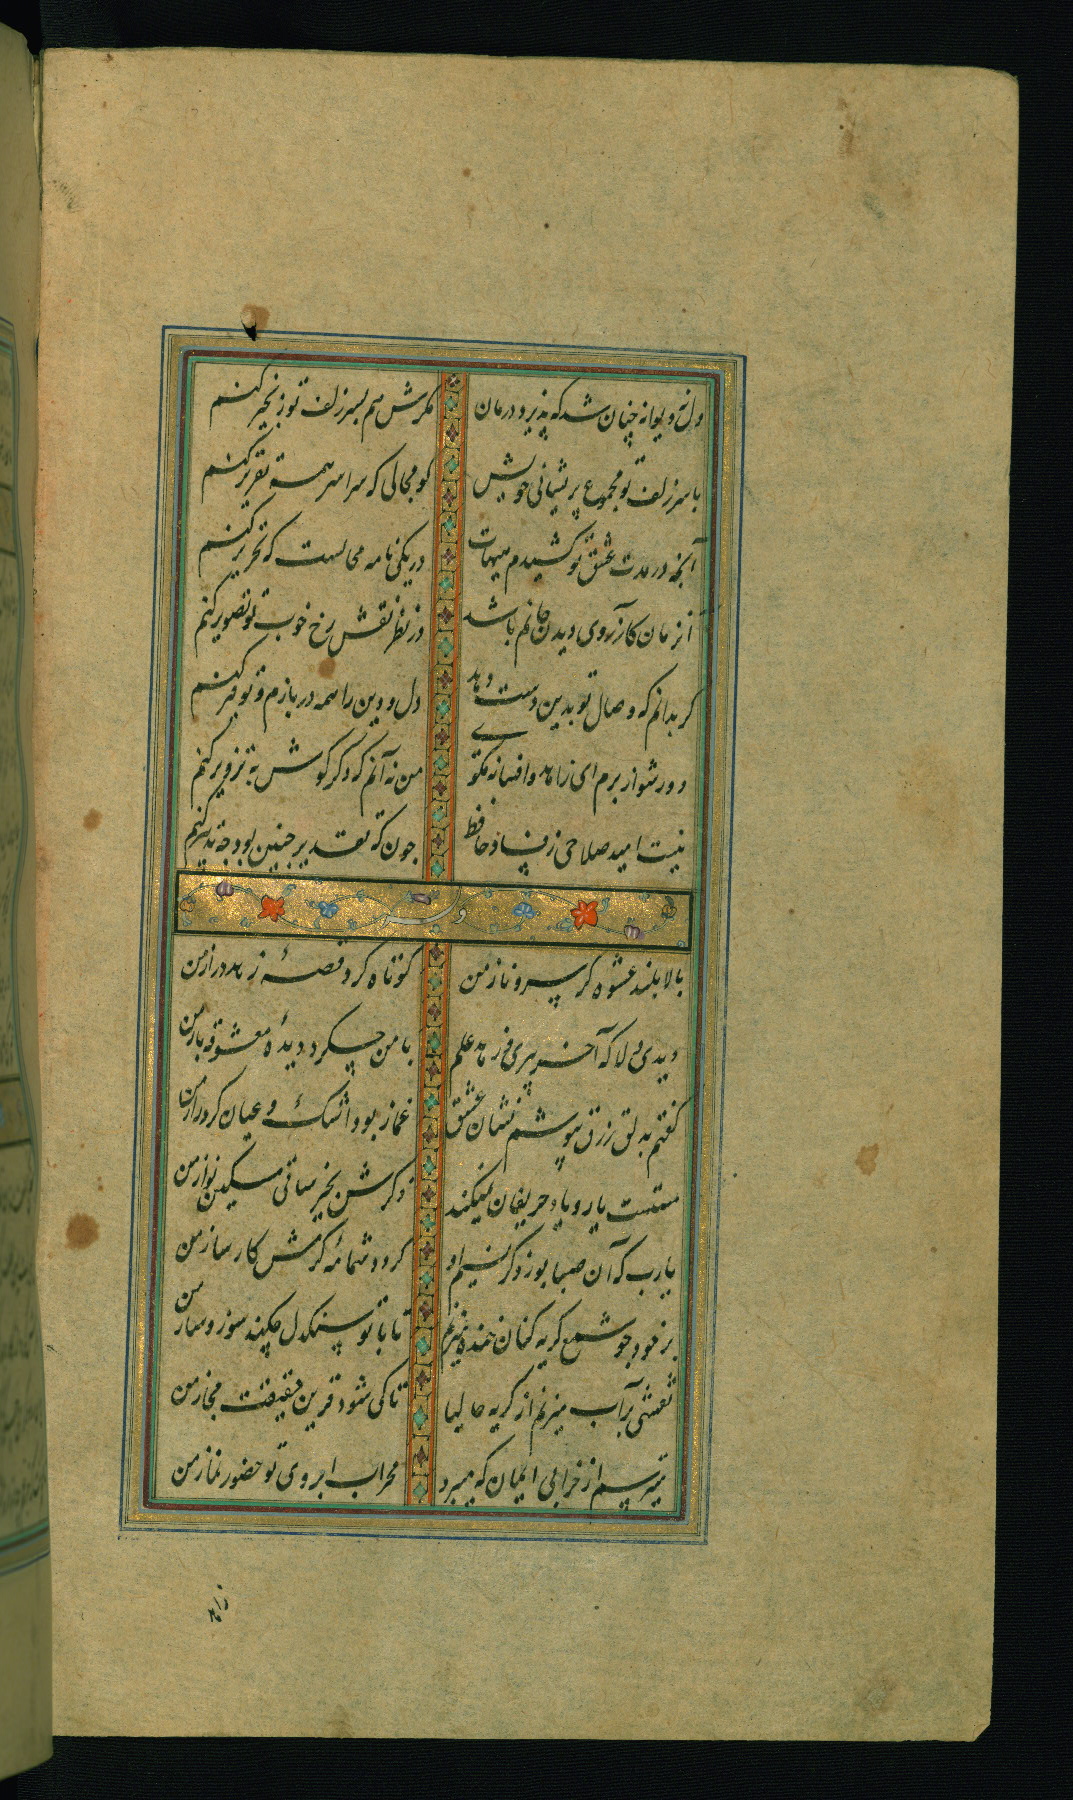 دل دیوانه چنان شد که پذیرد درمان مکرش هم بسر زلف تو زنجیر کنم
با سر زلف تو مجموع پریشانی خویش کو مجالی که سراسر همه تقریر کنم
آنچه در مدت عشق تو کشیدم هیهات در یکی نامه محالست که تحریر کنم
آنزمان کارزوی دیدن جانم باشد در نظر نقش رخ خوب تو تصویر کنم
کر بدانم که وصال تو بدین دست دهد دل و دین را همه در بازم و توفیر کنم
دور شو از برم ای زاهد و افسانه مکوی من نه آنم که دکر کوش به تزویر کنم
نیست امید صلاحی ز فساد حافظ چون که تقدیر چنین بود چه تدبیر کنم
وله
بالا بلند عشوه کر سرو ناز من کوتاه کرد قصهٔ زهد دراز من
دیدی دلا که آخر پیری و زهد و علم با من چه کرد دیدهٔ معشوقه باز من
کفتم بدلق زرق بپوشم نشان عشق غماز بود اشک و عیان کرد راز من
مستست یار و یاد حریفان نمیکند ذکرش بخیر ساقی مسکین نواز من
یارب که آن صبا بوزد کز نسیم او کردد شمامهٔ کرمش کارساز من
بر خود چو شمع کریه کنان خنده میزنم تا با تو سنکدل چکند سوز و ساز من
نقشی برآب میزنم از کریه حالیا تا کی شود قرین حقیقت مجاز من
میترسم از خرابی ایمان که میبرد محراب ابروی تو حضور نماز من
زاهد